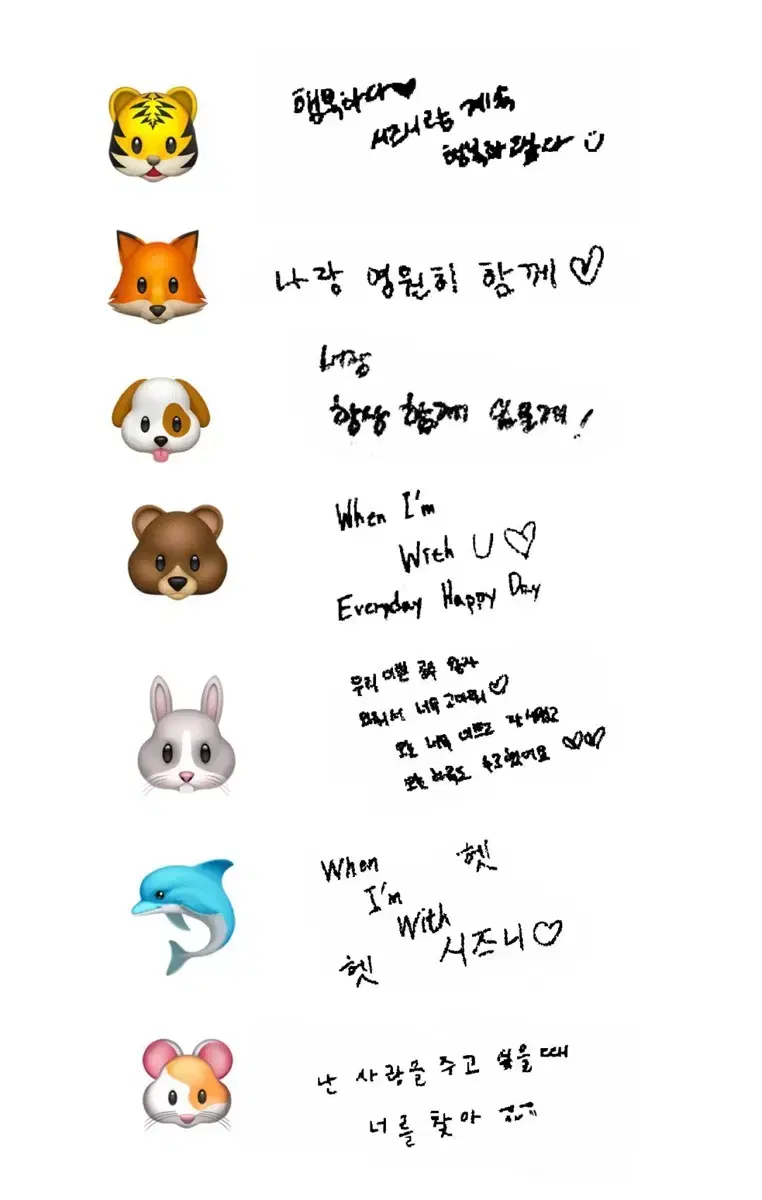 행복하다♥
시즈니랑 계속
행복하렵다 :)
나랑 영원히 함께♡
너랑
항상 함께 있을게!
When I'm
With U♡
Everyday Happy Day
우리 이쁜 공주 왕자
와줘서 너무 고마워♡
오늘 너무 이쁘고 잘생겼고
오늘 하루도 수고했어요 ♡♡
When 헷
I'm
With
시즈니♡
헷
난 사랑을 주고 싶을 때
너를 찾아